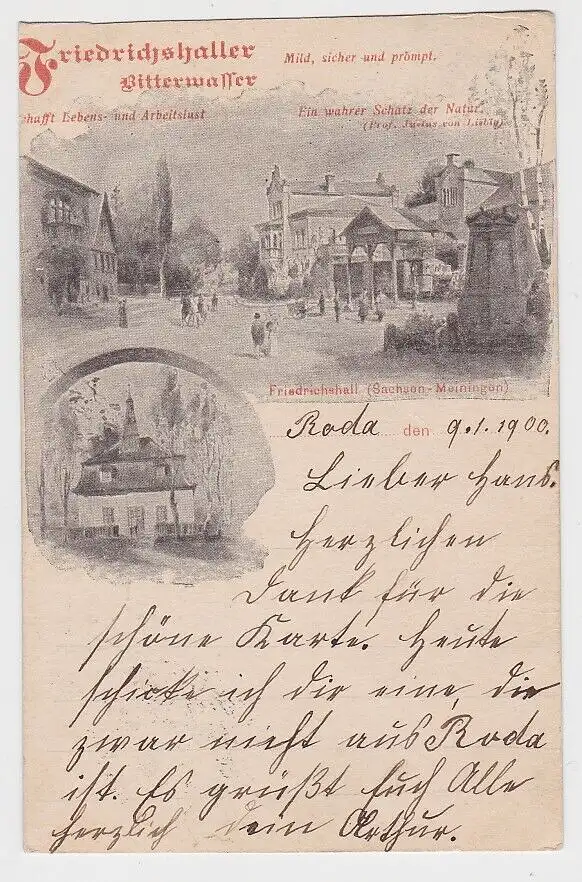 Friedrichshaller
Bitterwasser
Mild, sicher und prompt.
chafft Lebens- und Arbeitslust
Ein wahrer Schatz der Natur.
(Prof. Justus von Liebig)
Friedrichshall (Sachsen-Meiningen)
Roda den 9.1.1900.
Lieber Hans.
Herzlichen
Dank für die
schöne Karte. Heute
schicke ich dir eine, die
zwar nicht aus Roda
ist. Es grüßt Euch Alle
herzlich Dein Arthur.